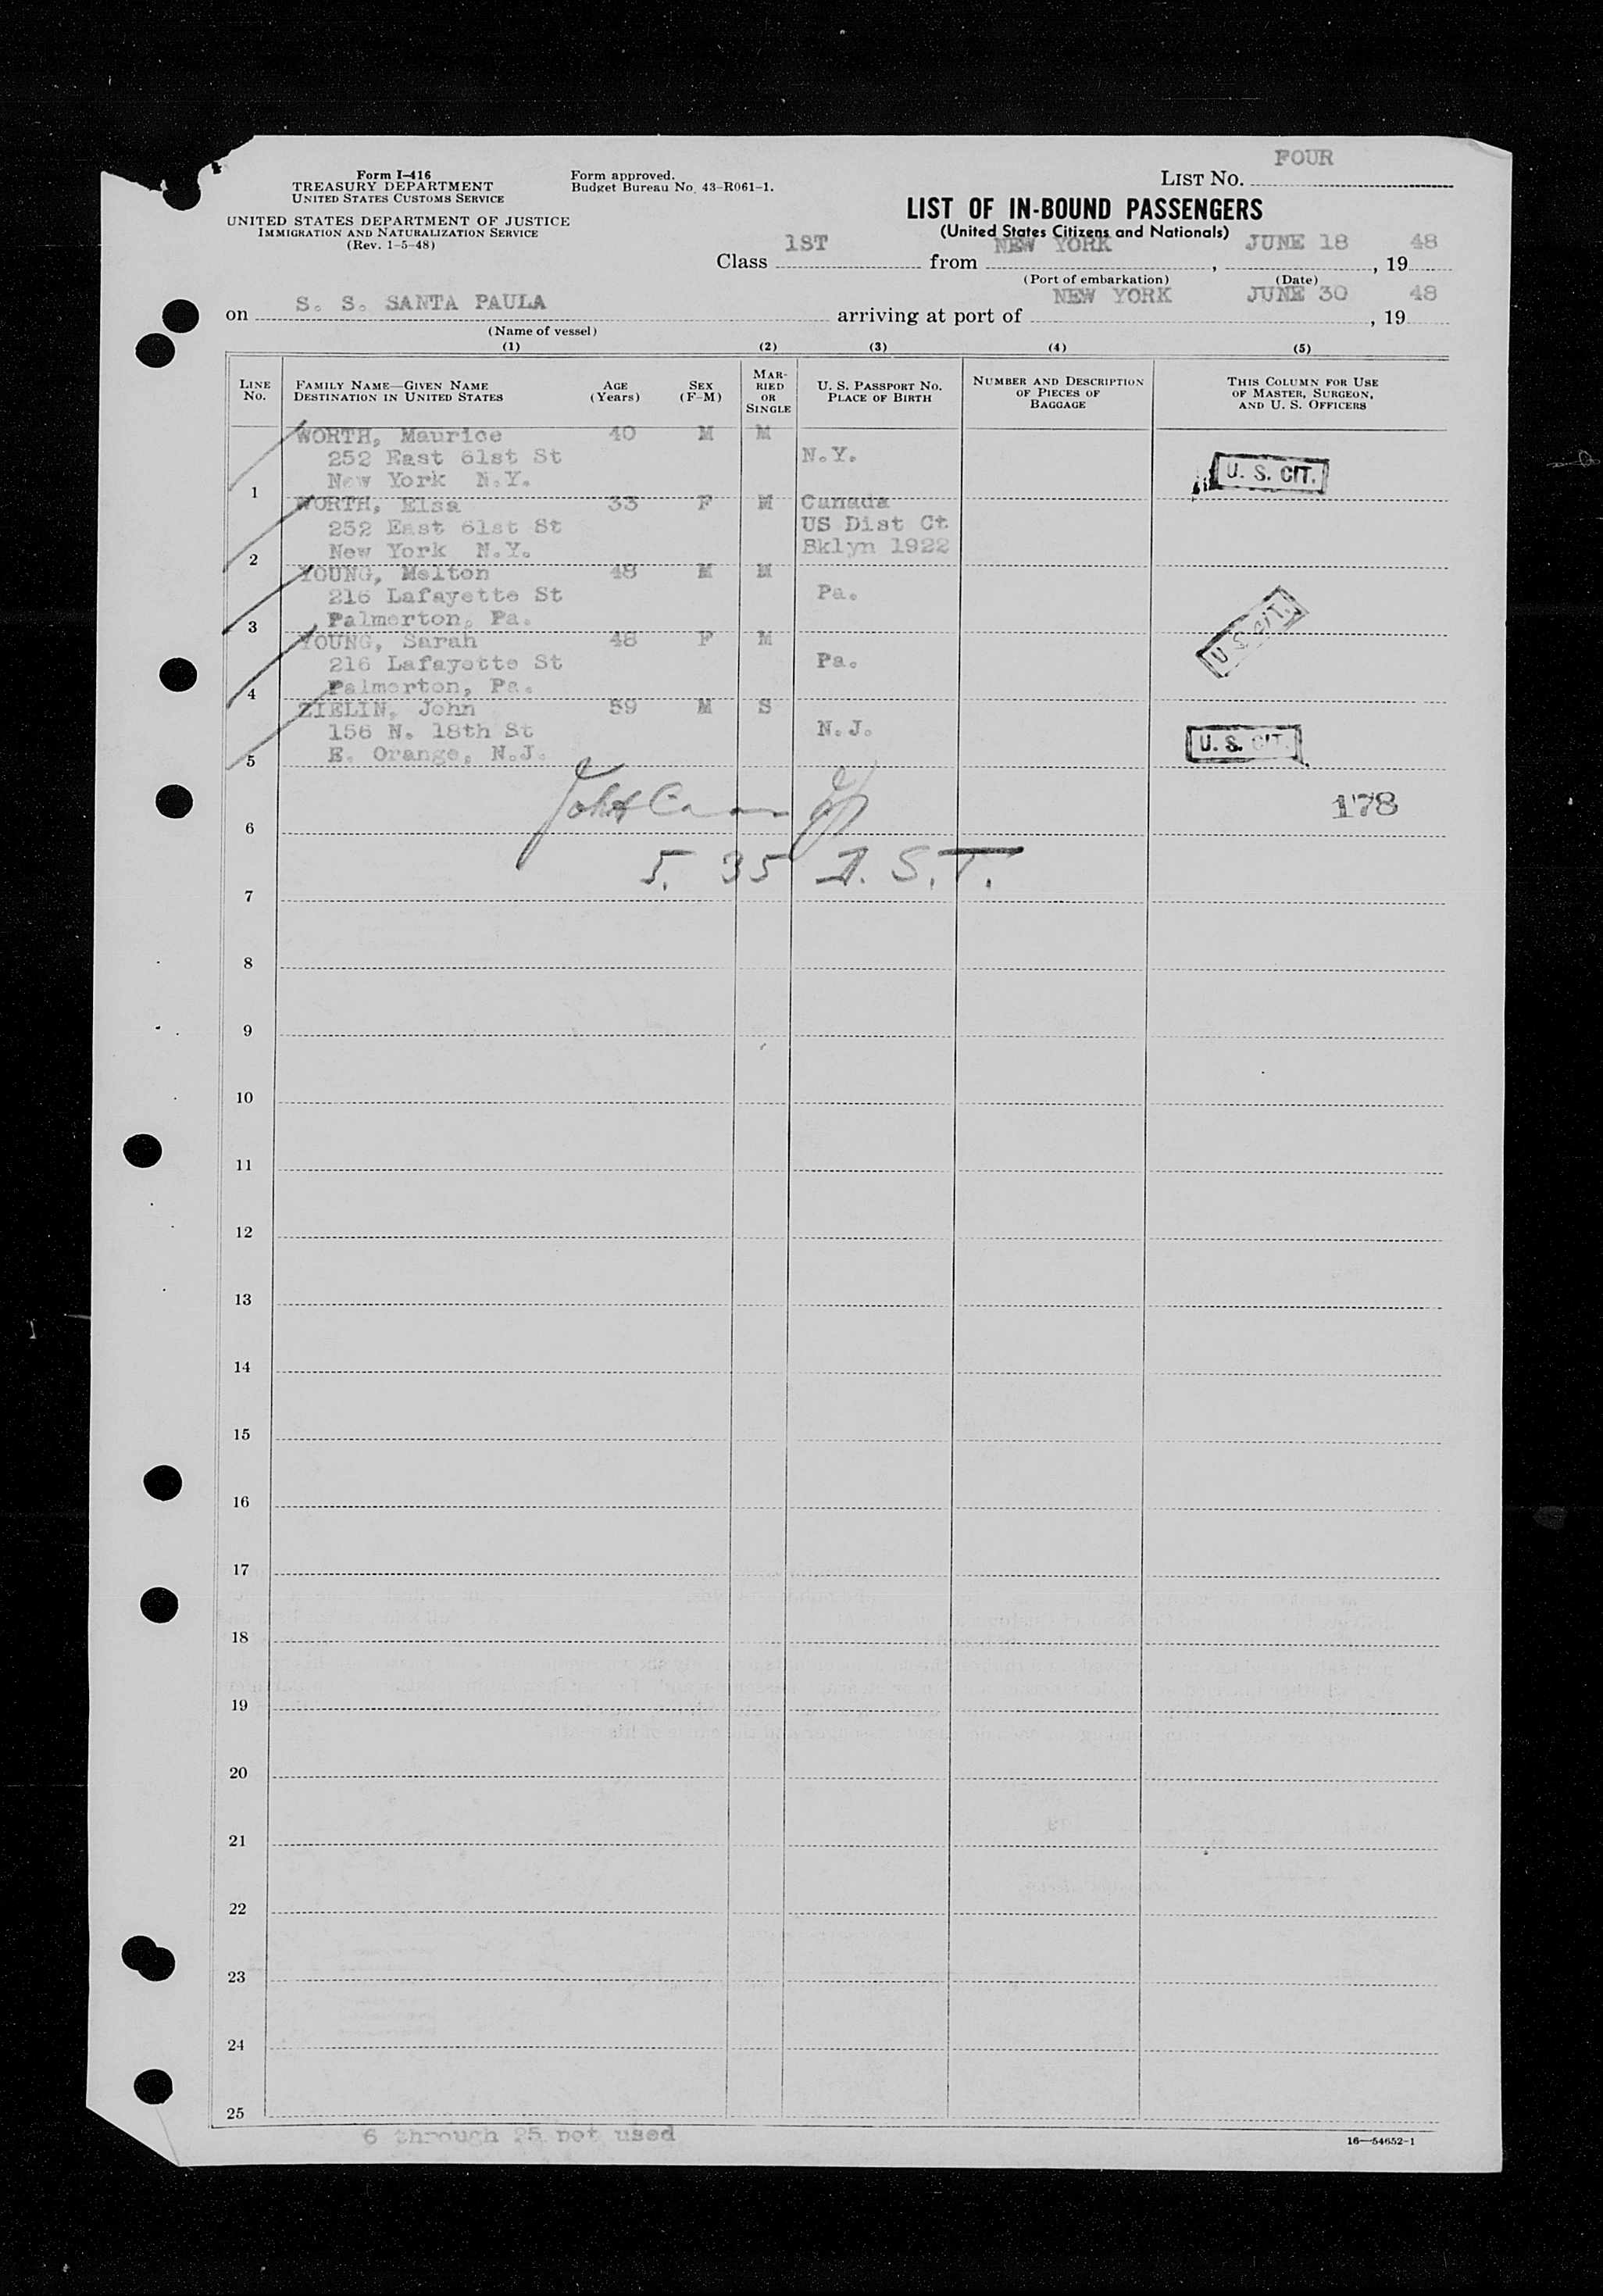 FOUR
Form I-416
TREASURY DEPARTMENT
UNITED STATES CUSTOMS SERVICE
Form approved.
Budget Bureau No. 43-R061-1.
LIST NO.
UNITED STATES DEPARTMENT OF JUSTICE
IMMIGRATION AND NATURALIZATION SERVICE
(Rev. 1-5-48)
LIST OF IN-BOUND PASSENGERS
(United States Citizens and Nationals)
Class 1ST from NEW YORK, JUNE 18, 1948
(Port of embarkation) (Date)
on S. S. SANTA PAULA arriving at port of NEW YORK JUNE 30, 1948
(Name of vessel)
(1) (2) (3) (4) (5)
LINE NO.
FAMILY NAME—GIVEN NAME
DESTINATION IN UNITED STATES
AGE
(Years)
SEX
(F-M)
MAR-
RIED
OR
SINGLE
U. S. PASSPORT NO.
PLACE OF BIRTH
NUMBER AND DESCRIPTION
OF PIECES OF
BAGGAGE
THIS COLUMN FOR USE
OF MASTER, SURGEON,
AND U. S. OFFICERS
WORTH, Maurice 40 M M
252 East 61st St N.Y.
New York N.Y.
1
U. S. CIT.
WORTH, Elsa 33 F M Canada
252 East 61st St US Dist Ct
New York N.Y. Bklyn 1922
2
YOUNG, Melton 48 M M
216 Lafayette St Pa.
Palmerton, Pa.
3
U S CIT.
YOUNG, Sarah 48 F M
216 Lafayette St Pa.
Palmerton, Pa.
4
ZIELIN, John 59 M S
156 N. 18th St N.J.
E. Orange, N.J.
5
U. S. CIT.
178
6
5. 35 D.S.T.
7
8
9
10
11
12
13
14
15
16
17
18
19
20
21
22
23
24
25
6 through 25 not used
16—54652-1